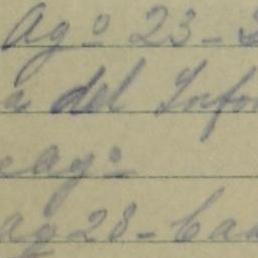 Agº 23-3
a del Info
Agº
ag 28-Ca